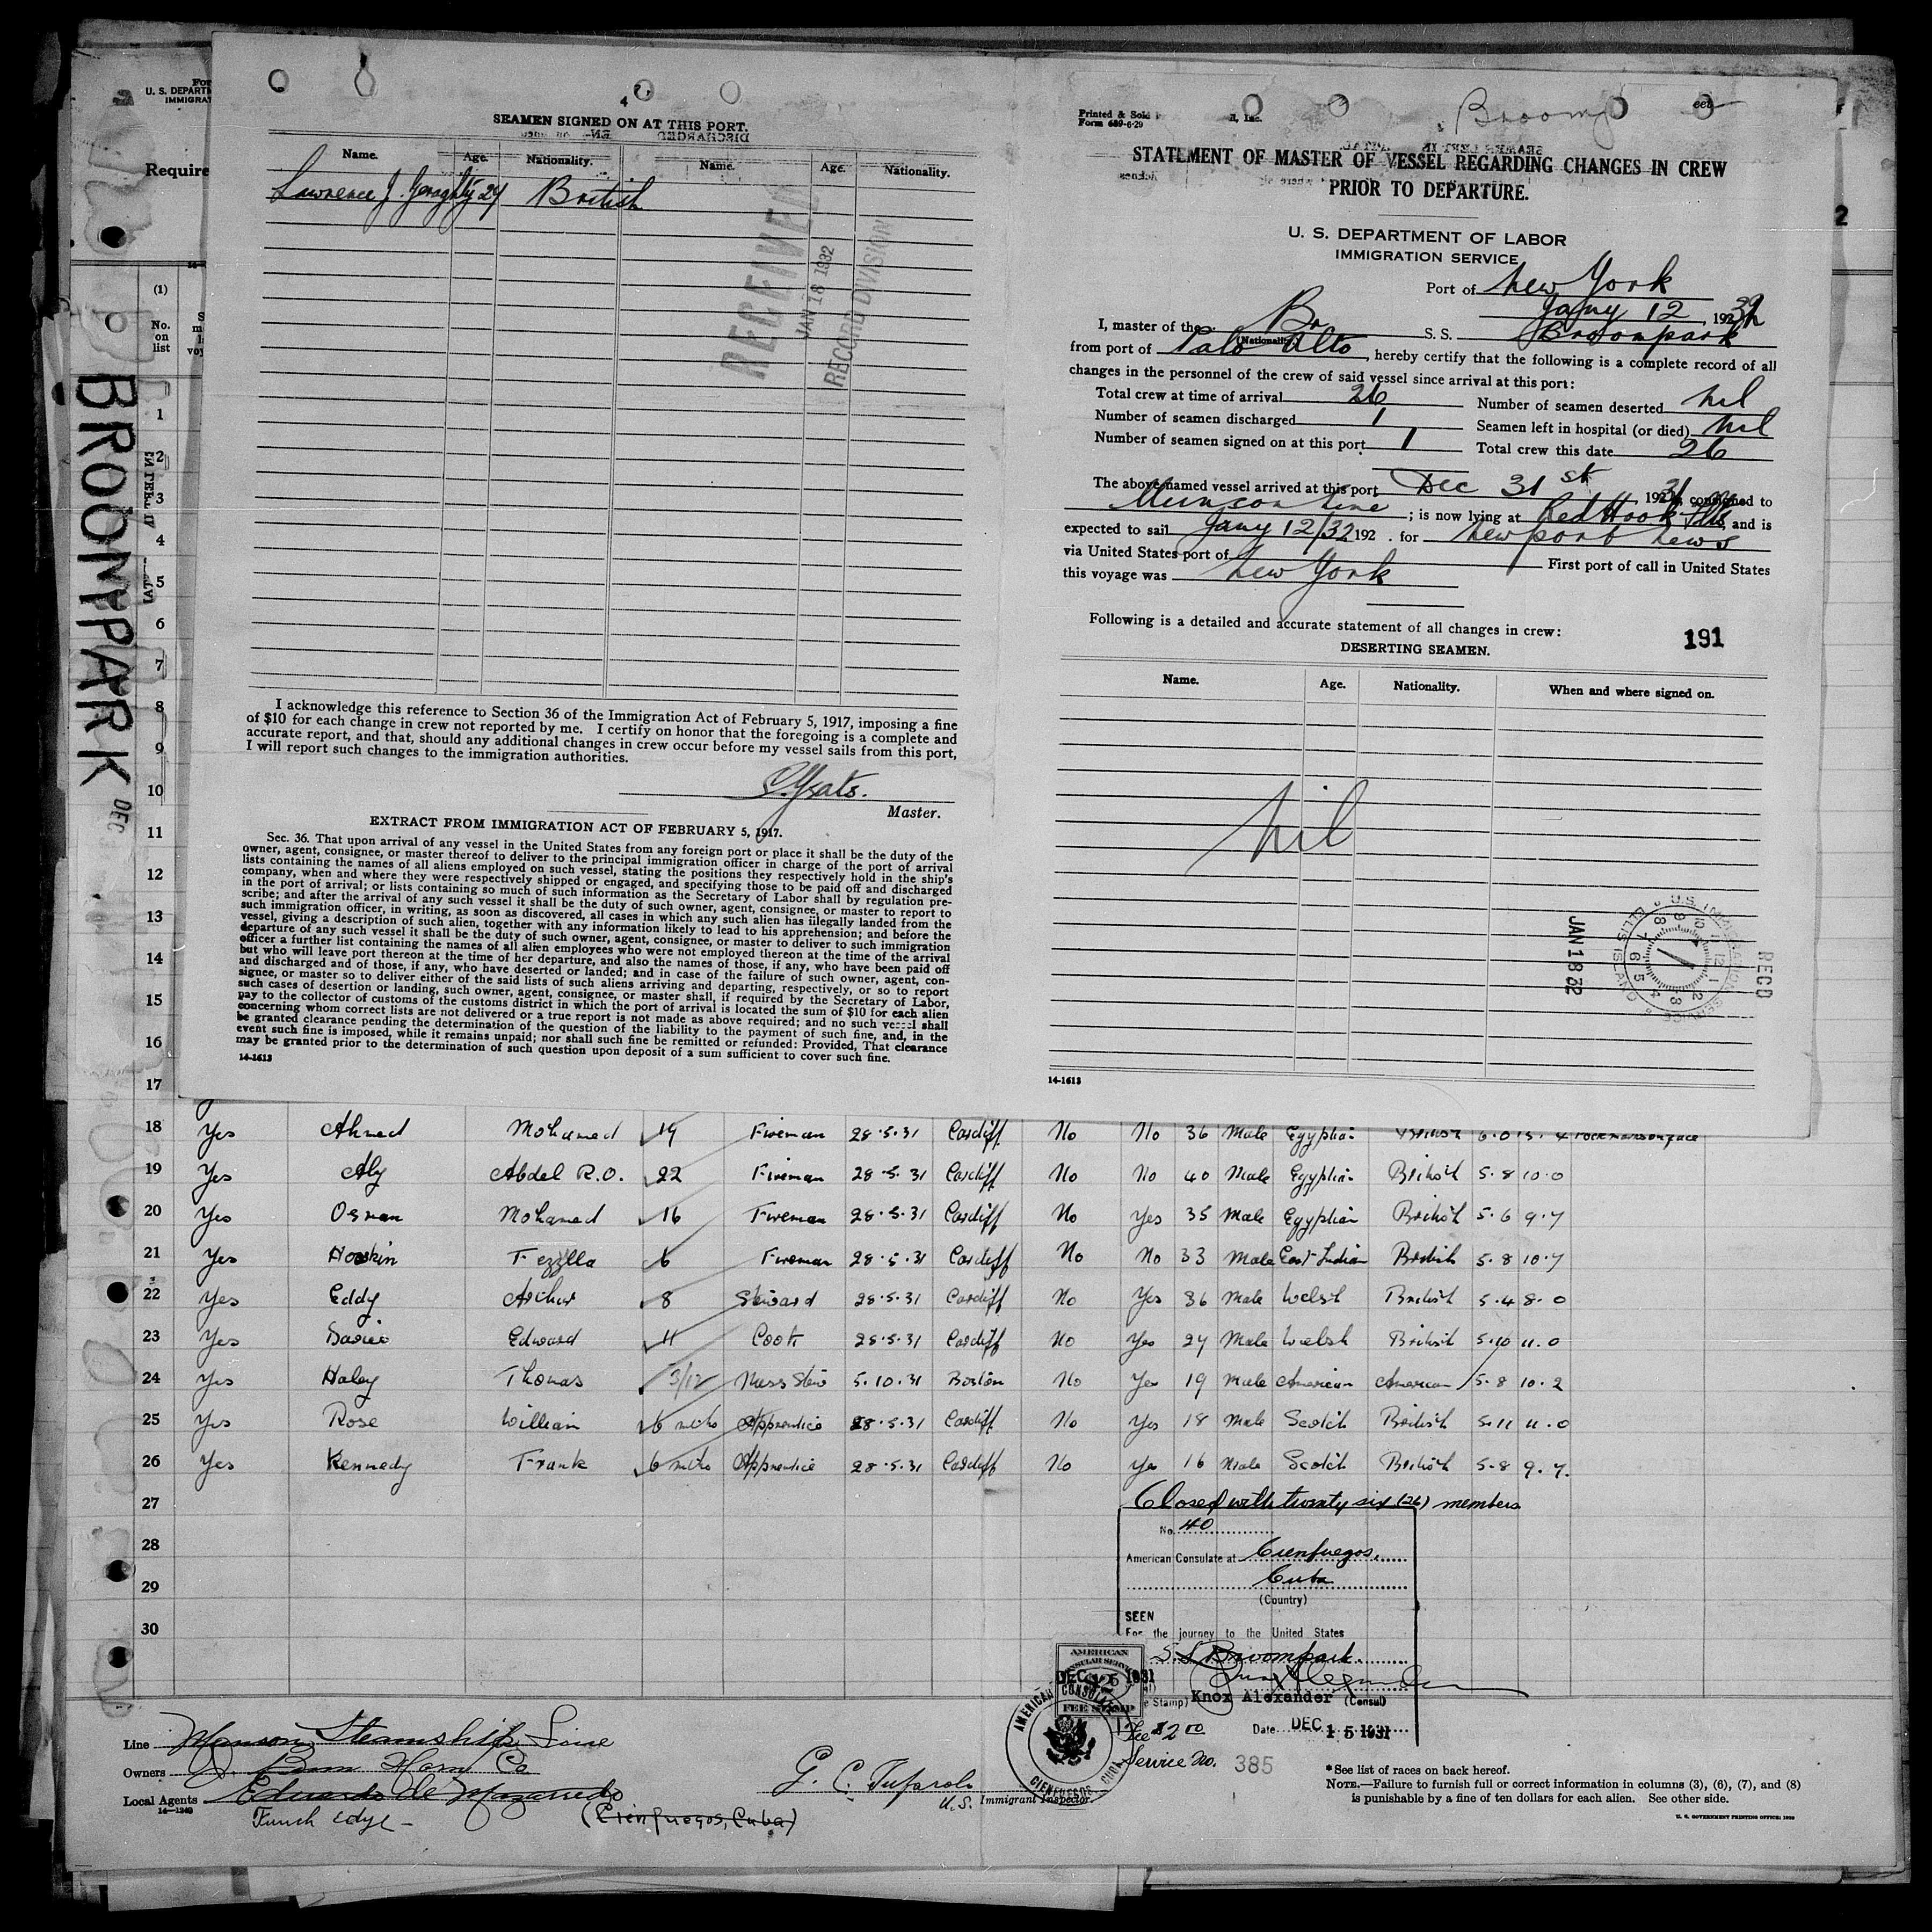 SEAMEN SIGNED ON AT THIS PORT.
Name. Age. Nationality. Name. Age. Nationality.
Lawrence J. Geraghty 24 British
RECEIVED
JAN 18 1932
RECORD DIVISION
I acknowledge this reference to Section 36 of the Immigration Act of February 5, 1917, imposing a fine
of $10 for each change in crew not reported by me. I certify on honor that the foregoing is a complete and
accurate report, and that, should any additional changes in crew occur before my vessel sails from this port,
I will report such changes to the immigration authorities.
Master.
EXTRACT FROM IMMIGRATION ACT OF FEBRUARY 5, 1917.
Sec. 36. That upon arrival of any vessel in the United States from any foreign port or place it shall be the duty of the
owner, agent, consignee, or master thereof to deliver to the principal immigration officer in charge of the port of arrival
lists containing the names of all aliens employed on such vessel, stating the positions they respectively hold in the ship's
company, when and where they were respectively shipped or engaged, and specifying those to be paid off and discharged
in the port of arrival; or lists containing so much of such information as the Secretary of Labor shall by regulation pre-
scribe; and after the arrival of any such vessel it shall be the duty of such owner, agent, consignee, or master to report to
such immigration officer, in writing, as soon as discovered, all cases in which any such alien has illegally landed from the
vessel, giving a description of such alien, together with any information likely to lead to his apprehension; and before the
departure of any such vessel it shall be the duty of such owner, agent, consignee, or master to deliver to such immigration
officer a further list containing the names of all alien employees who were not employed thereon at the time of the arrival
but who will leave port thereon at the time of her departure, and also the names of those, if any, who have been paid off
and discharged and of those, if any, who have deserted or landed; and in case of the failure of such owner, agent, con-
signee, or master so to deliver either of the said lists of such aliens arriving and departing, respectively, or so to report
such cases of desertion or landing, such owner, agent, consignee, or master shall, if required by the Secretary of Labor,
pay to the collector of customs of the customs district in which the port of arrival is located the sum of $10 for each alien
concerning whom correct lists are not delivered or a true report is not made as above required; and no such vessel shall
be granted clearance pending the determination of the question of the liability to the payment of such fine, and, in the
event such fine is imposed, while it remains unpaid; nor shall such fine be remitted or refunded: Provided, That clearance
may be granted prior to the determination of such question upon deposit of a sum sufficient to cover such fine.
14-1613
Printed & Sold
Form 689-6-29
STATEMENT OF MASTER OF VESSEL REGARDING CHANGES IN CREW
PRIOR TO DEPARTURE.
U. S. DEPARTMENT OF LABOR
IMMIGRATION SERVICE
Port of New York
Jany 12, 1932
I, master of the Br (Nationality) S. S. Broompark
from port of Palo Alto, hereby certify that the following is a complete record of all
changes in the personnel of the crew of said vessel since arrival at this port:
Total crew at time of arrival 26 Number of seamen deserted nil
Number of seamen discharged 1 Seamen left in hospital (or died) nil
Number of seamen signed on at this port 1 Total crew this date 26
The above-named vessel arrived at this port Dec 31st, 1931 is consigned to
Munson Line; is now lying at Red Hook, and is
expected to sail Jany 12/32 192 . for Newport News
via United States port of First port of call in United States
this voyage was New York
Following is a detailed and accurate statement of all changes in crew:
191
DESERTING SEAMEN.
Name. Age. Nationality. When and where signed on.
nil
RECD
U.S. IMMIGRATION SERVICE ELLIS ISLAND
14-1613
U. S. DEPART
IMMIGRAT
Require
BROOMPARK
DEC
(1)
No. on list
1
2
3
4
5
6
7
8
9
10
11
12
13
14
15
16
17
18 Yes Ahmed Mohamed 19 Fireman 28.5.31 Cardiff No No 36 Male Egyptian British
19 Yes Aly Abdel R.O. 22 Fireman 28.5.31 Cardiff No No 40 Male Egyptian British 5.8 10.0
20 Yes Osman Mohamed 16 Fireman 28.5.31 Cardiff No Yes 35 Male Egyptian British 5.6 9.7
21 Yes Fezzlla 6 Fireman 28.5.31 Cardiff No No 33 Male East Indian British 5.8 10.7
22 Yes Eddy Arthur 8 Steward 28.5.31 Cardiff No Yes 36 Male Welsh British 5.4 8.0
23 Yes Davies Edward 11 Cook 28.5.31 Cardiff No Yes 27 Male Welsh British 5.10 11.0
24 Yes Haley Thomas 3/12 Mess Stew 5.10.31 Boston No Yes 19 Male American American 5.8 10.2
25 Yes Rose William 6 mths Apprentice 28.5.31 Cardiff No Yes 18 Male Scotch British 5.11 11.0
26 Yes Kennedy Frank 6 mths Apprentice 28.5.31 Cardiff No Yes 16 Male Scotch British 5.8 9.7.
27 Closed with twenty six (26) members
28
29
30
No. 40
American Consulate at Cienfuegos,
Cuba
(Country)
SEEN
For the journey to the United States
S.S. Broompark
Knox Alexander (Consul)
Fee $2.00 Date DEC 15 1931
Service No. 385
AMERICAN CONSULAR SERVICE
FEE STAMP
AMERICAN CONSULATE CIENFUEGOS CUBA
Line Munson Steamship Line
Owners
Local Agents Eduardo de Mazarredo
14-1240
Funch Edye
(Cienfuegos, Cuba)
U.S. Immigrant Inspector.
*See list of races on back hereof.
NOTE.—Failure to furnish full or correct information in columns (3), (6), (7), and (8)
is punishable by a fine of ten dollars for each alien. See other side.
U. S. GOVERNMENT PRINTING OFFICE: 1930